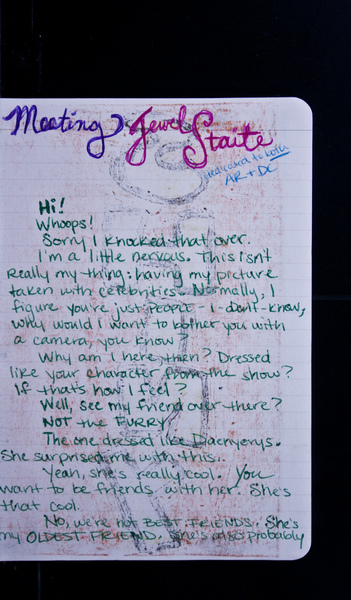 Meeting Jewel
Staite
dedicated to both
AR + DC
Hi!
Whoops!
Sorry I knocked that over.
I'm a little nervous. This isn't
really my thing: having my picture
taken with celebrities. Normally, I
figure you're just people - I don't know,
why would I want to bother you with
a camera, you know?
Why am I here, then? Dressed
like your character from the show?
If that's how I feel?
Well, see my friend over there?
NOT the FURRY.
The one dressed like Daenyerys.
She surprised me with this.
Yeah, she's really cool. You
want to be friends with her. She's
that cool.
No, we're not BEST FRIENDS. She's
my OLDEST FRIEND. She's also probably